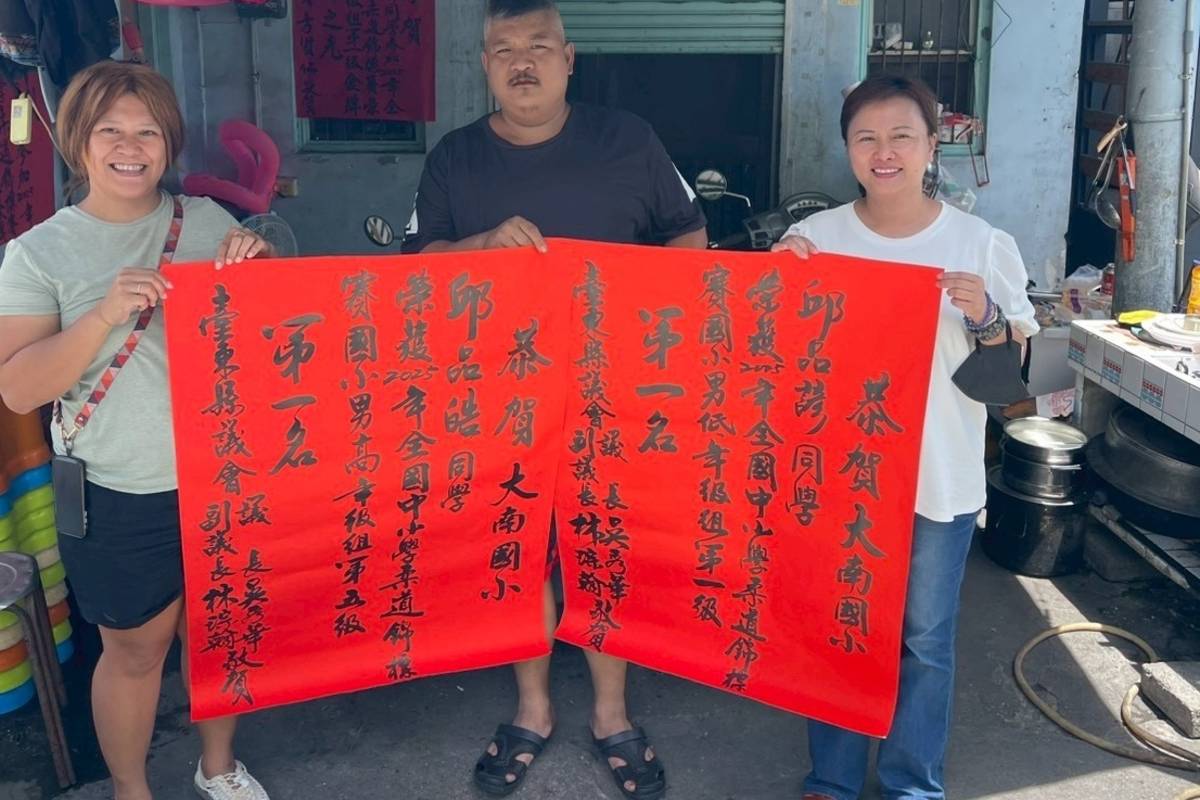 恭賀大南國小
邱品 同學
榮獲2025年全國中小學柔道錦標
賽國小男低年級組第一級
第一名
臺東縣議會 議長吳秀華
副議長林琮翰 敬賀
恭賀 大南國小
邱品皓 同學
榮獲2025年全國中小學柔道錦標
賽國小男高年級組第五級
第一名
臺東縣議會 議長吳秀華
副議長林琮翰 敬賀
賀
2025年全
組第一級金牌
之光